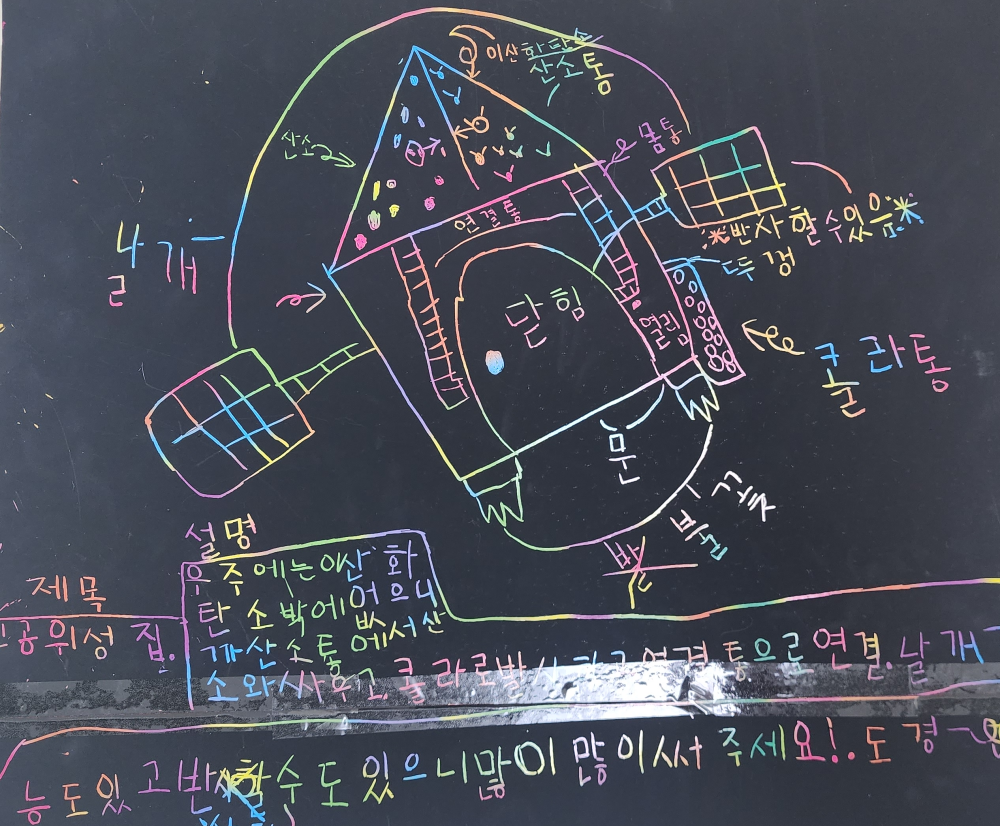 이산화탄소
산소통
산소
몸통
연결통
날개
*반사할 수 있음*
뚜껑
닫힘
열림
콜라통
문
불꽃
설명
우주에는 이산화
탄소 밖에 없으니
까 산소통에서 산
소와 사우고, 콜라로 발사 하고 연결통으로 연결. 날개
제목
인공위성 집.
능도 있고 반사할 수도 있으니 많이 많이 써 주세요!. 도경